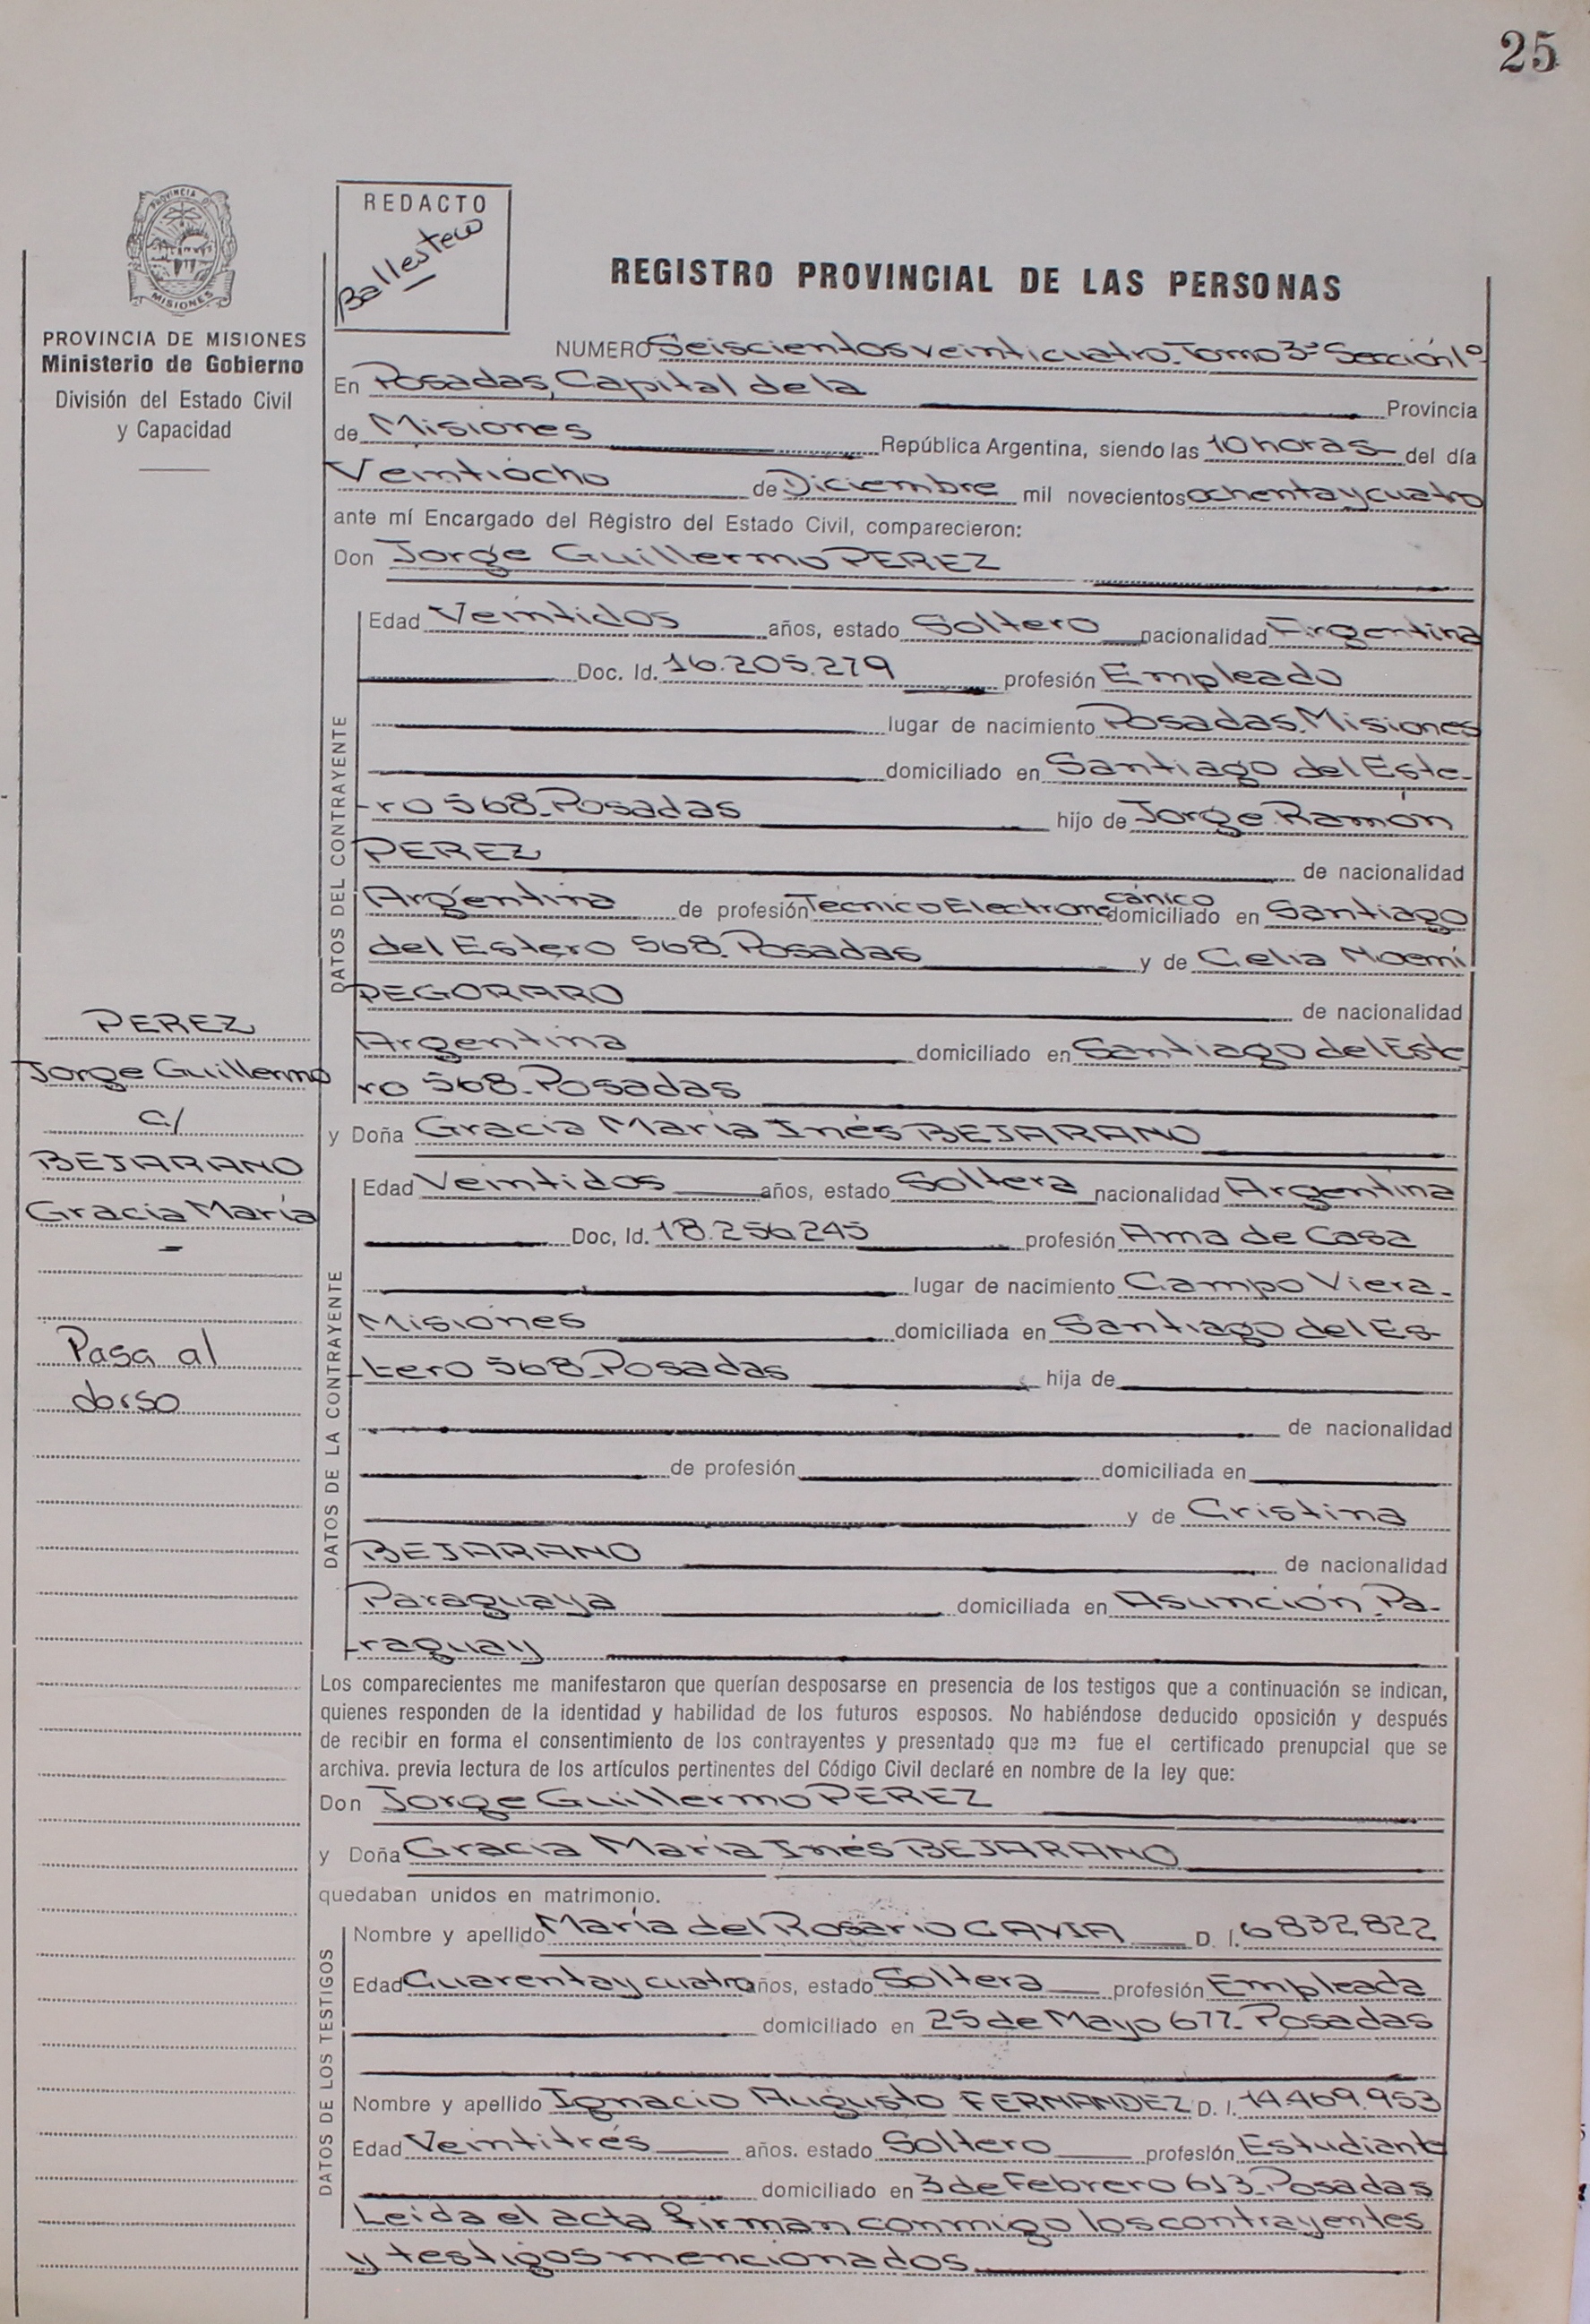 25
PROVINCIA DE
MISIONES
PROVINCIA DE MISIONES
Ministerio de Gobierno
División del Estado Civil
y Capacidad
REDACTO
REGISTRO PROVINCIAL DE LAS PERSONAS
NUMERO Seiscientos veinticuatro. Tomo 3º Sección 1º
En Posadas, Capital de la Provincia
de Misiones República Argentina, siendo las 10 horas del día
Veintiocho de Diciembre mil novecientos ochenta y cuatro
ante mí Encargado del Registro del Estado Civil, comparecieron:
Don Jorge Guillermo PEREZ
DATOS DEL CONTRAYENTE
Edad Veintidos años, estado Soltero nacionalidad Argentina
Doc. Id. 16.205.279 profesión Empleado
lugar de nacimiento Posadas. Misiones
domiciliado en Santiago del Este-
-ro 568. Posadas hijo de Jorge Ramón
PEREZ de nacionalidad
Argentina de profesión Tecnico Electromecánico domiciliado en Santiago
del Estero 568. Posadas y de Celia Noemí
PEGORARO de nacionalidad
Argentina domiciliado en Santiago del Este
ro 568. Posadas
y Doña Gracia María Inés BEJARANO
DATOS DE LA CONTRAYENTE
Edad Veintidos años, estado Soltera nacionalidad Argentina
Doc, Id. 18.256.245 profesión Ama de Casa
lugar de nacimiento Campo Viera.
Misiones domiciliada en Santiago del Es-
-tero 568. Posadas hija de
de nacionalidad
de profesión domiciliada en
y de Cristina
BEJARANO de nacionalidad
Paraguaya domiciliada en Asunción. Pa-
-raguay
PEREZ
Jorge Guillermo
c/
BEJARANO
Gracia María
Pasa al
dorso
Los comparecientes me manifestaron que querían desposarse en presencia de los testigos que a continuación se indican,
quienes responden de la identidad y habilidad de los futuros esposos. No habiéndose deducido oposición y después
de recibir en forma el consentimiento de los contrayentes y presentado que me fue el certificado prenupcial que se
archiva. previa lectura de los artículos pertinentes del Código Civil declaré en nombre de la ley que:
Don Jorge Guillermo PEREZ
y Doña Gracia María Inés BEJARANO
quedaban unidos en matrimonio.
DATOS DE LOS TESTIGOS
Nombre y apellido María del Rosario GAVIA D. I. 6832822
Edad Cuarenta y cuatro años, estado Soltera profesión Empleada
domiciliado en 25 de Mayo 677. Posadas
Nombre y apellido Ignacio Augusto FERNANDEZ D. I. 14.469.953
Edad Veintitrés años. estado Soltero profesión Estudiante
domiciliado en 3 de Febrero 613. Posadas
Leida el acta firman conmigo los contrayentes
y testigos mencionados